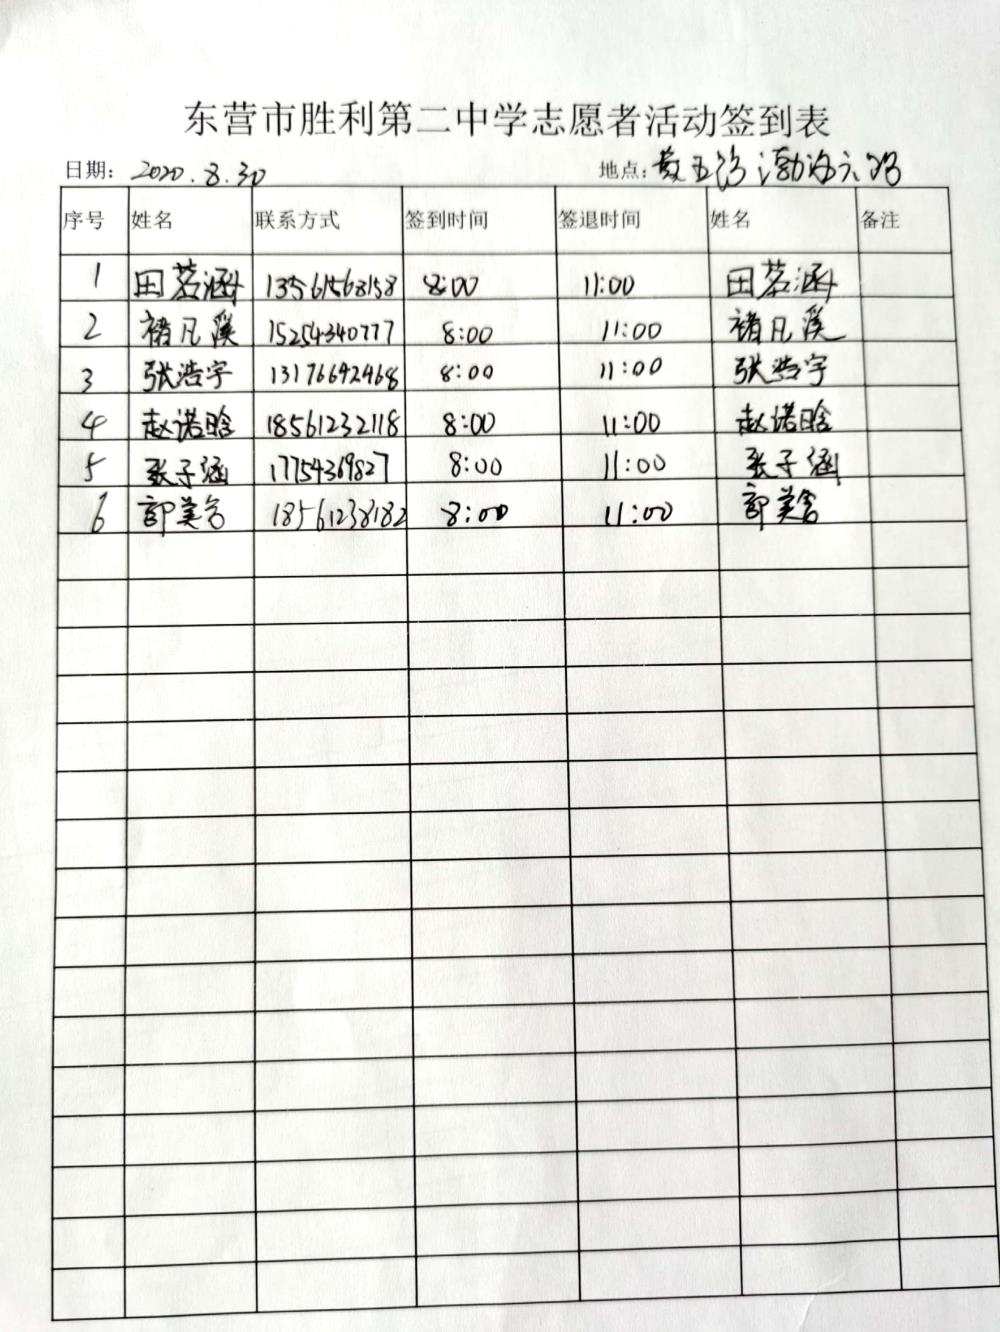 东营市胜利第二中学志愿者活动签到表
日期: 2020.8.30 地点: 黄五路渤海六路
序号 姓名 联系方式 签到时间 签退时间 姓名 备注
1 田茗涵 13561568158 8:00 11:00 田茗涵
2 褚凡溪 15254340777 8:00 11:00 褚凡溪
3 张浩宇 13176642468 8:00 11:00 张浩宇
4 赵诺晗 18561232118 8:00 11:00 赵诺晗
5 张子涵 17754369827 8:00 11:00 张子涵
6 郭美含 18561238182 8:00 11:00 郭美含